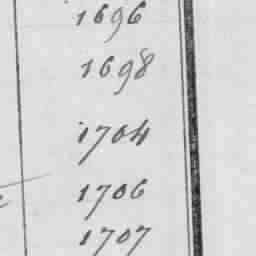 1696
1698
1704
1706
1707